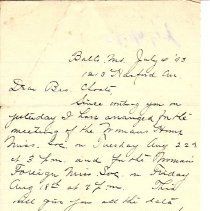 Balto. Md. July 4 '03
1213 Harford Av.
Dear Bro. Choate
Since writing you on
yesterday I have arranged for the
meeting of the Womans Home
Miss. Soc. on Tuesday Aug 22d
at 3 p.m. and for the Womans
Foreign Miss Soc. on Friday
Aug 18th at 2 p.m. This
will give you all the data